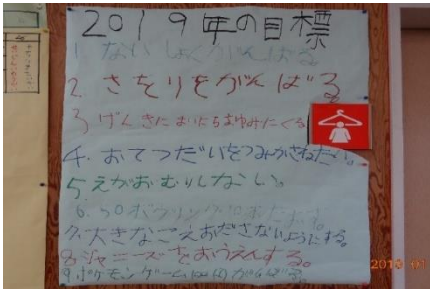 2019年の目標
1. ないしょくがんばる
2. さをりをがんばる
3 げんきにまいにちあゆみにくる
4. おてつだいをつみかさねたい。
5 えがおむりしない。
6. ボウリング
7. 大きなこえおださないようにする。
8. ジャニーズをおうえんする。
9. ポケモンゲーム がんばる